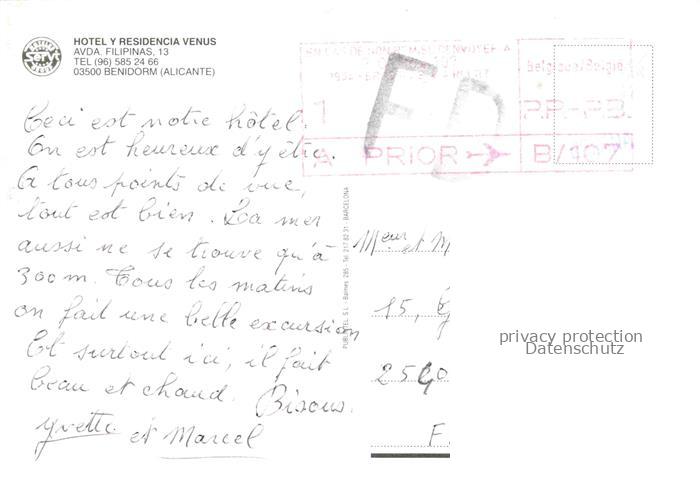 HOTEL Y RESIDENCIA VENUS
AVDA. FILIPINAS, 13
TEL (96) 585 24 66
03500 BENIDORM (ALICANTE)
Ceci est notre hôtel.
On est heureux d'y être.
A tous points de vue,
tout est bien. La mer
aussi ne se trouve qu'à
300 m. Tous les matins
on fait une belle excursion
Et surtout ici, il fait
beau et chaud. Bisous.
Yvette et Marcel
PUBLI
S.L. - Balmes 285 - Tel. 217 82 31 - BARCELONA
1
P.P.-P.B.
A PRIOR B/107
Meur et M
15,
F
privacy protection
Datenschutz